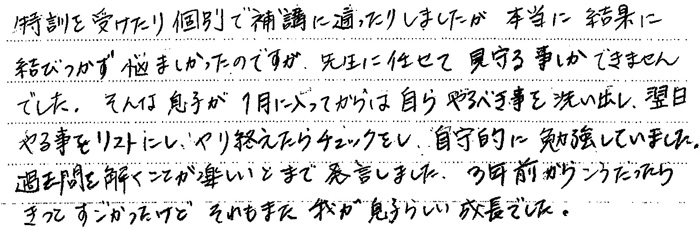 特訓を受けたり個別で補講に通ったりしましたが 本当に結果に
結びつかず悩ましかったのですが、先生に任せて見守る事しかできません
でした。そんな息子が1月に入ってからは自らやるべき事を洗い出し、翌日
やる事をリストにし、やり終えたらチェックをし、自守的に勉強していました。
過去問を解くことが楽しいとまで発言しました。3年前からこうだったら
きっとすごかったけど それもまた我が息子らしい成長でした。